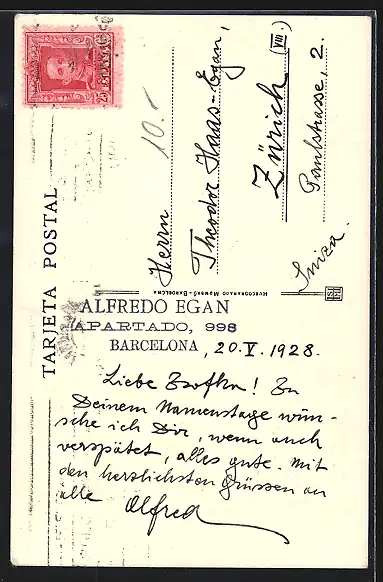 TARJETA POSTAL
25
10.-
Herrn
Theodor Haas-Egan,
Zürich (VIII)
Paulstrasse, 2.
Suiza.
HUECOGRABADO MUMBRÚ-BARCELONA
ALFREDO EGAN
APARTADO, 998
BARCELONA, 20.V.1928.
Liebe ! Zu
Deinem Namenstage wün-
sche ich Dir, wenn auch
verspätet, alles gute. Mit
den herzlichsten Grüssen an
alle Alfred